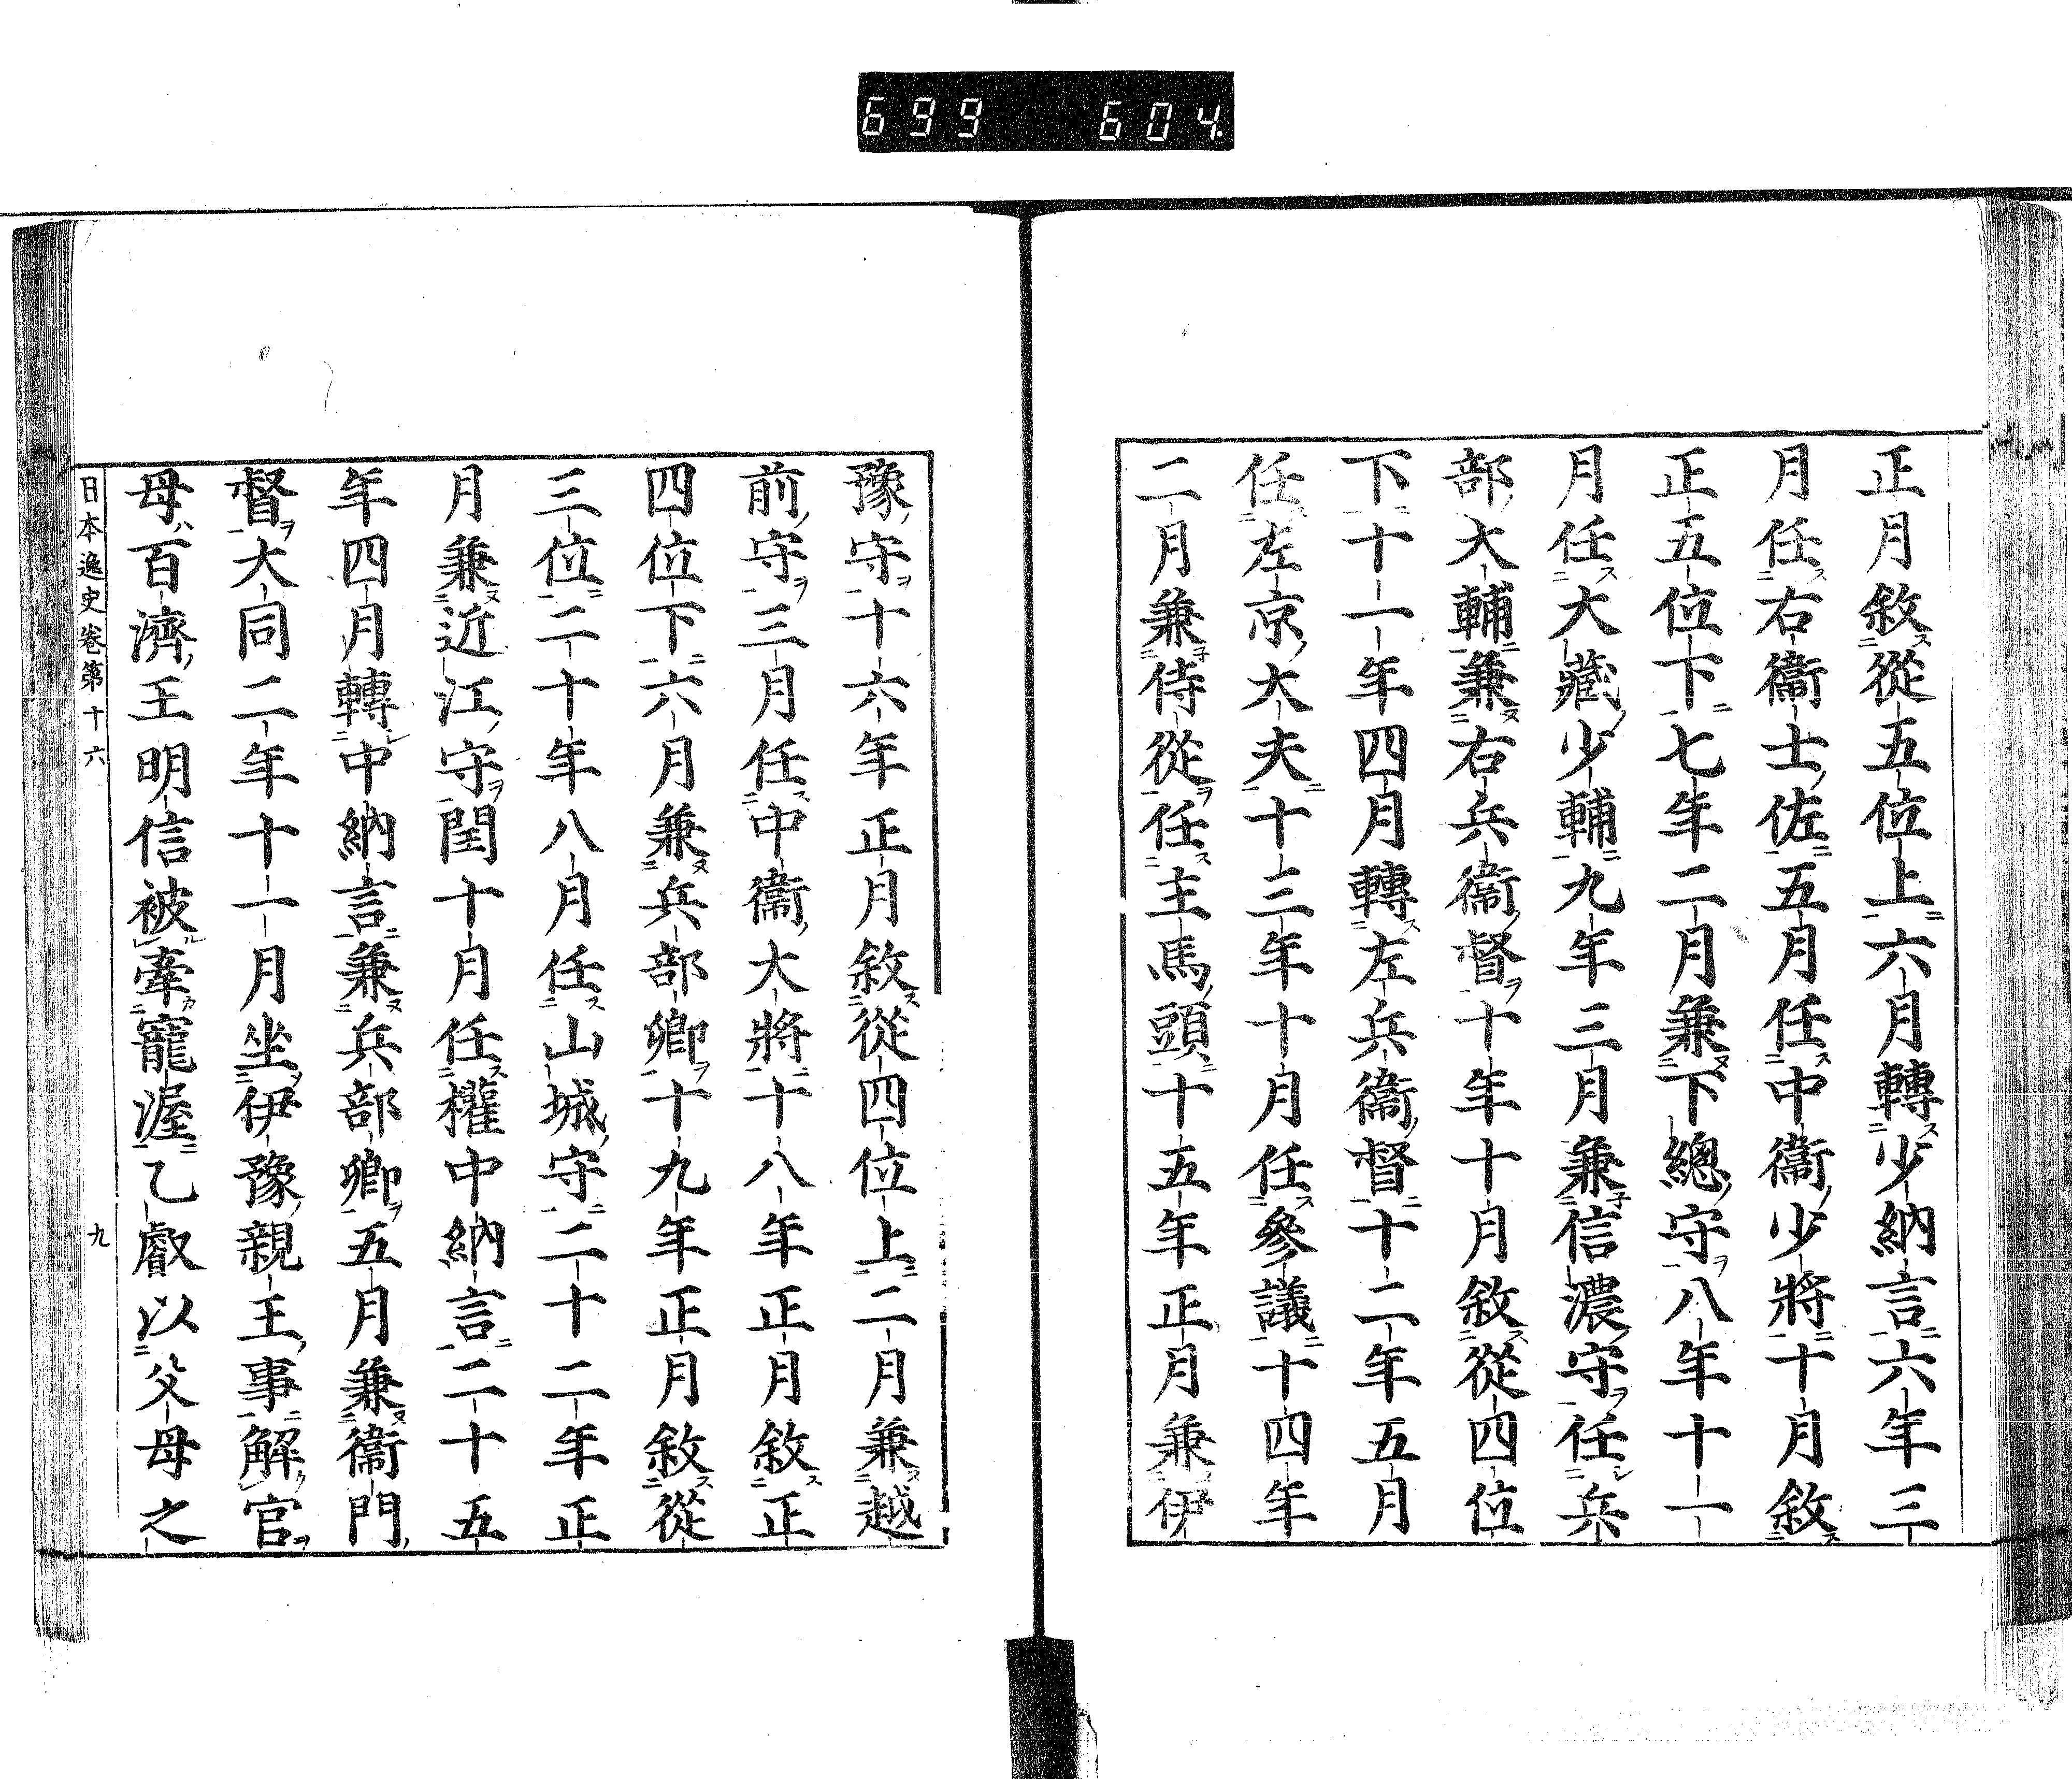 699 604
正月敘從五位上六月轉少納言六年三
月任右衞士佐五月任中衞少將十月敘
正五位下七年二月兼下總守八年十一
月任大藏少輔九年三月兼信濃守任兵
部大輔兼右兵衞督十年十月敘從四位
下十一年四月轉左兵衞督十二年五月
任左京大夫十三年十月任參議十四年
二月兼侍從任主馬頭十五年正月兼伊
豫守十六年正月敘從四位上二月兼越
前守三月任中衞大將十八年正月敘正
四位下六月兼兵部卿十九年正月敘從
三位二十年八月任山城守二十二年正
月兼近江守閏十月任權中納言二十五
年四月轉中納言兼兵部卿五月兼衞門
督大同二年十一月坐伊豫親王事解官
母百濟王明信被牽寵渥乙叡以父母之
日本逸史卷第十六 九